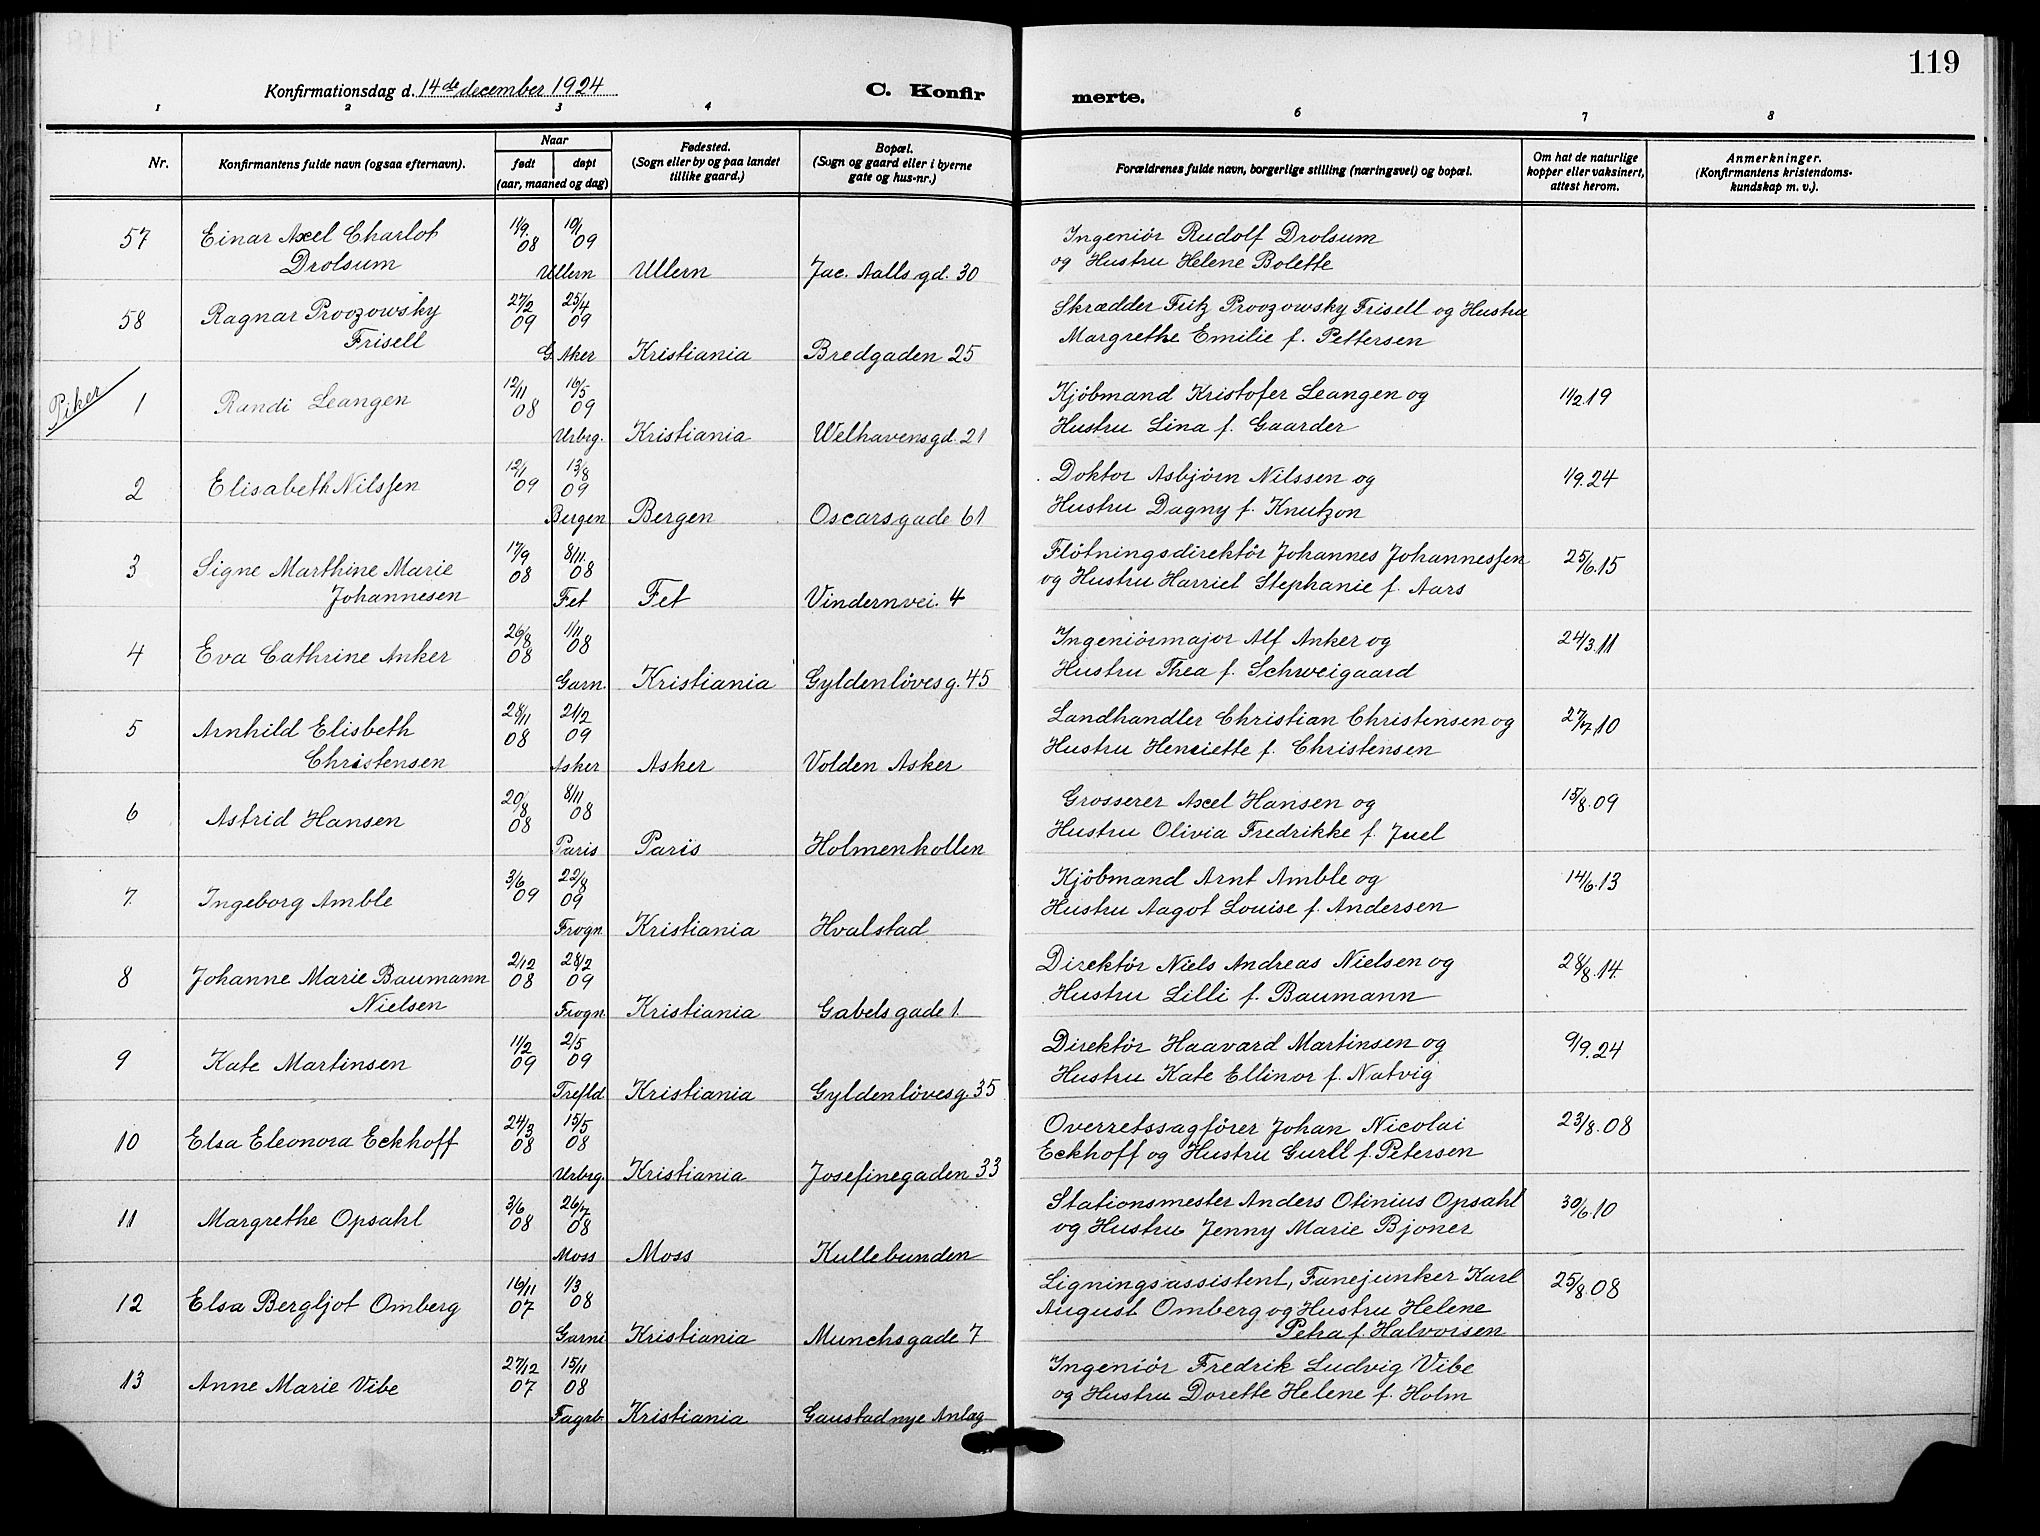 119
Konfirmationsdag d. 14de december 1924
C. Konfirmerte.
1 2 3 4 6 7 8
Nr.
Konfirmantens fulde navn (ogsaa efternavn).
Naar
født døpt
(aar, maaned og dag)
Fødested.
(Sogn eller by og paa landet
tillike gaard.)
Bopæl.
(Sogn og gaard eller i byerne
gate og hus-nr.)
Forældrenes fulde navn, borgerlige stilling (næringsvei) og bopæl.
Om hat de naturlige
kopper eller vaksinert,
attest herom.
Anmerkninger.
(Konfirmantens kristendoms-
kundskap m. v.).
57 Einar Axel Charlot 11/9. 08 10/1 09 Ingeniør Rudolf Drolsum
Drolsum Ullern Ullern Jac. Aalls gd. 30 og Hustru Helene Bolette
58 Ragnar Proozowsky 27/2 09 25/4 09 Skrædder Fritz Proozowsky Frisell og Hustru
Frisell G. Aker Kristiania Bredgaden 25 Margrethe Emilie f. Pettersen
Piker
1 Randi Leangen 12/11 08 16/5 09 Kjøbmand Kristofer Leangen og 11/2 19
Urbrg. Kristiania Welhavensgd. 21 Hustru Lina f. Gaarder
2 Elisabeth Nilssen 12/1 09 13/8 09 Doktor Asbjørn Nilssen og 1/9. 24
Bergen Bergen Oscarsgade 61 Hustru Dagny f. Knutzon
3 Signe Marthine Marie 17/9 08 8/11 08 Fløtningsdirektør Johannes Johannessen 25/6.15
Johannesen Fet Fet Vindernvei. 4 og Hustru Harriet Stephanie f. Aars
4 Eva Cathrine Anker 26/8 08 1/11 08 Ingeniørmajor Alf Anker og 24/3.11
Garn. Kristiania Gyldenløvesg. 45 Hustru Thea f. Schweigaard
5 Arnhild Elisbeth 28/11 08 21/2 09 Landhandler Christian Christensen og 27/7.10
Christensen Asker Asker Volden Asker Hustru Henriette f. Christensen
6 Astrid Hansen 20/8 08 8/11 08 Grosserer Axel Hansen og 15/8.09
Paris Paris Holmenkollen Hustru Olivia Fredrikke f. Juel
7. Ingeborg Amble 3/6 09 22/8 09 Kjøbmand Arnt Amble og 14/6.13
Frogn. Kristiania Hvalstad Hustru Aagot Louise f. Andersen
8 Johanne Marie Baumann 2/12 08 28/2 09 Direktør Niels Andreas Nielsen og 28/8.14.
Nielsen Frogn. Kristiania Gabelsgade 1. Hustru Lilli f. Baumann
9 Kate Martinsen 11/2 09 2/5 09 Direktør Haavard Martinsen og 9/9.24
Trefld. Kristiania Gyldenløvesg. 35 Hustru Kate Ellinor f. Natvig
10 Elsa Eleonora Eckhoff 24/3 08 15/5 08 Overretssagfører Johan Nicolai 23/8.08
Urbrg. Kristiania Josefinegaden 33 Eckhoff og Hustru Gurll f. Petersen
11 Margrethe Opsahl 3/6 08 26/7 08 Stationsmester Anders Otinius Opsahl 30/6.10
Moss Moss Kullebunden og Hustru Jenny Marie Bjoner
12 Elsa Bergljot Omberg 16/11 07 1/3 08 Ligningsassistent, Fanejunker Karl 25/8.08
August Omberg og Hustru Helene
Garni Kristiania Munchsgade 7 Petra f. Halvorsen
13 Anne Marie Vibe 27/12 07 15/11 08 Ingeniør Fredrik Ludvig Vibe
Fagrb. Kristiania Gaustad nye Anlæg og Hustru Dorette Helene f. Holm